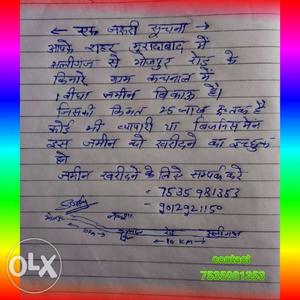 ← एक जरूरी सूचना →
आपके शहर मुरादाबाद में
अलीगंज से भोजपुर रोड के
किनारे ग्राम कचनाल में
1 बीघा जमीन बिकाऊ है।
जिसकी किमत 25 लाख रु० तक है
कोई भी व्यापारी या बिजनिस मेन
इस जमीन को खरीदने का इच्छुक
हो
जमीन खरीदने के लिए सम्पर्क करे
- 7535981353
- 9012921150
10 KM
OLX
contact
7535981353